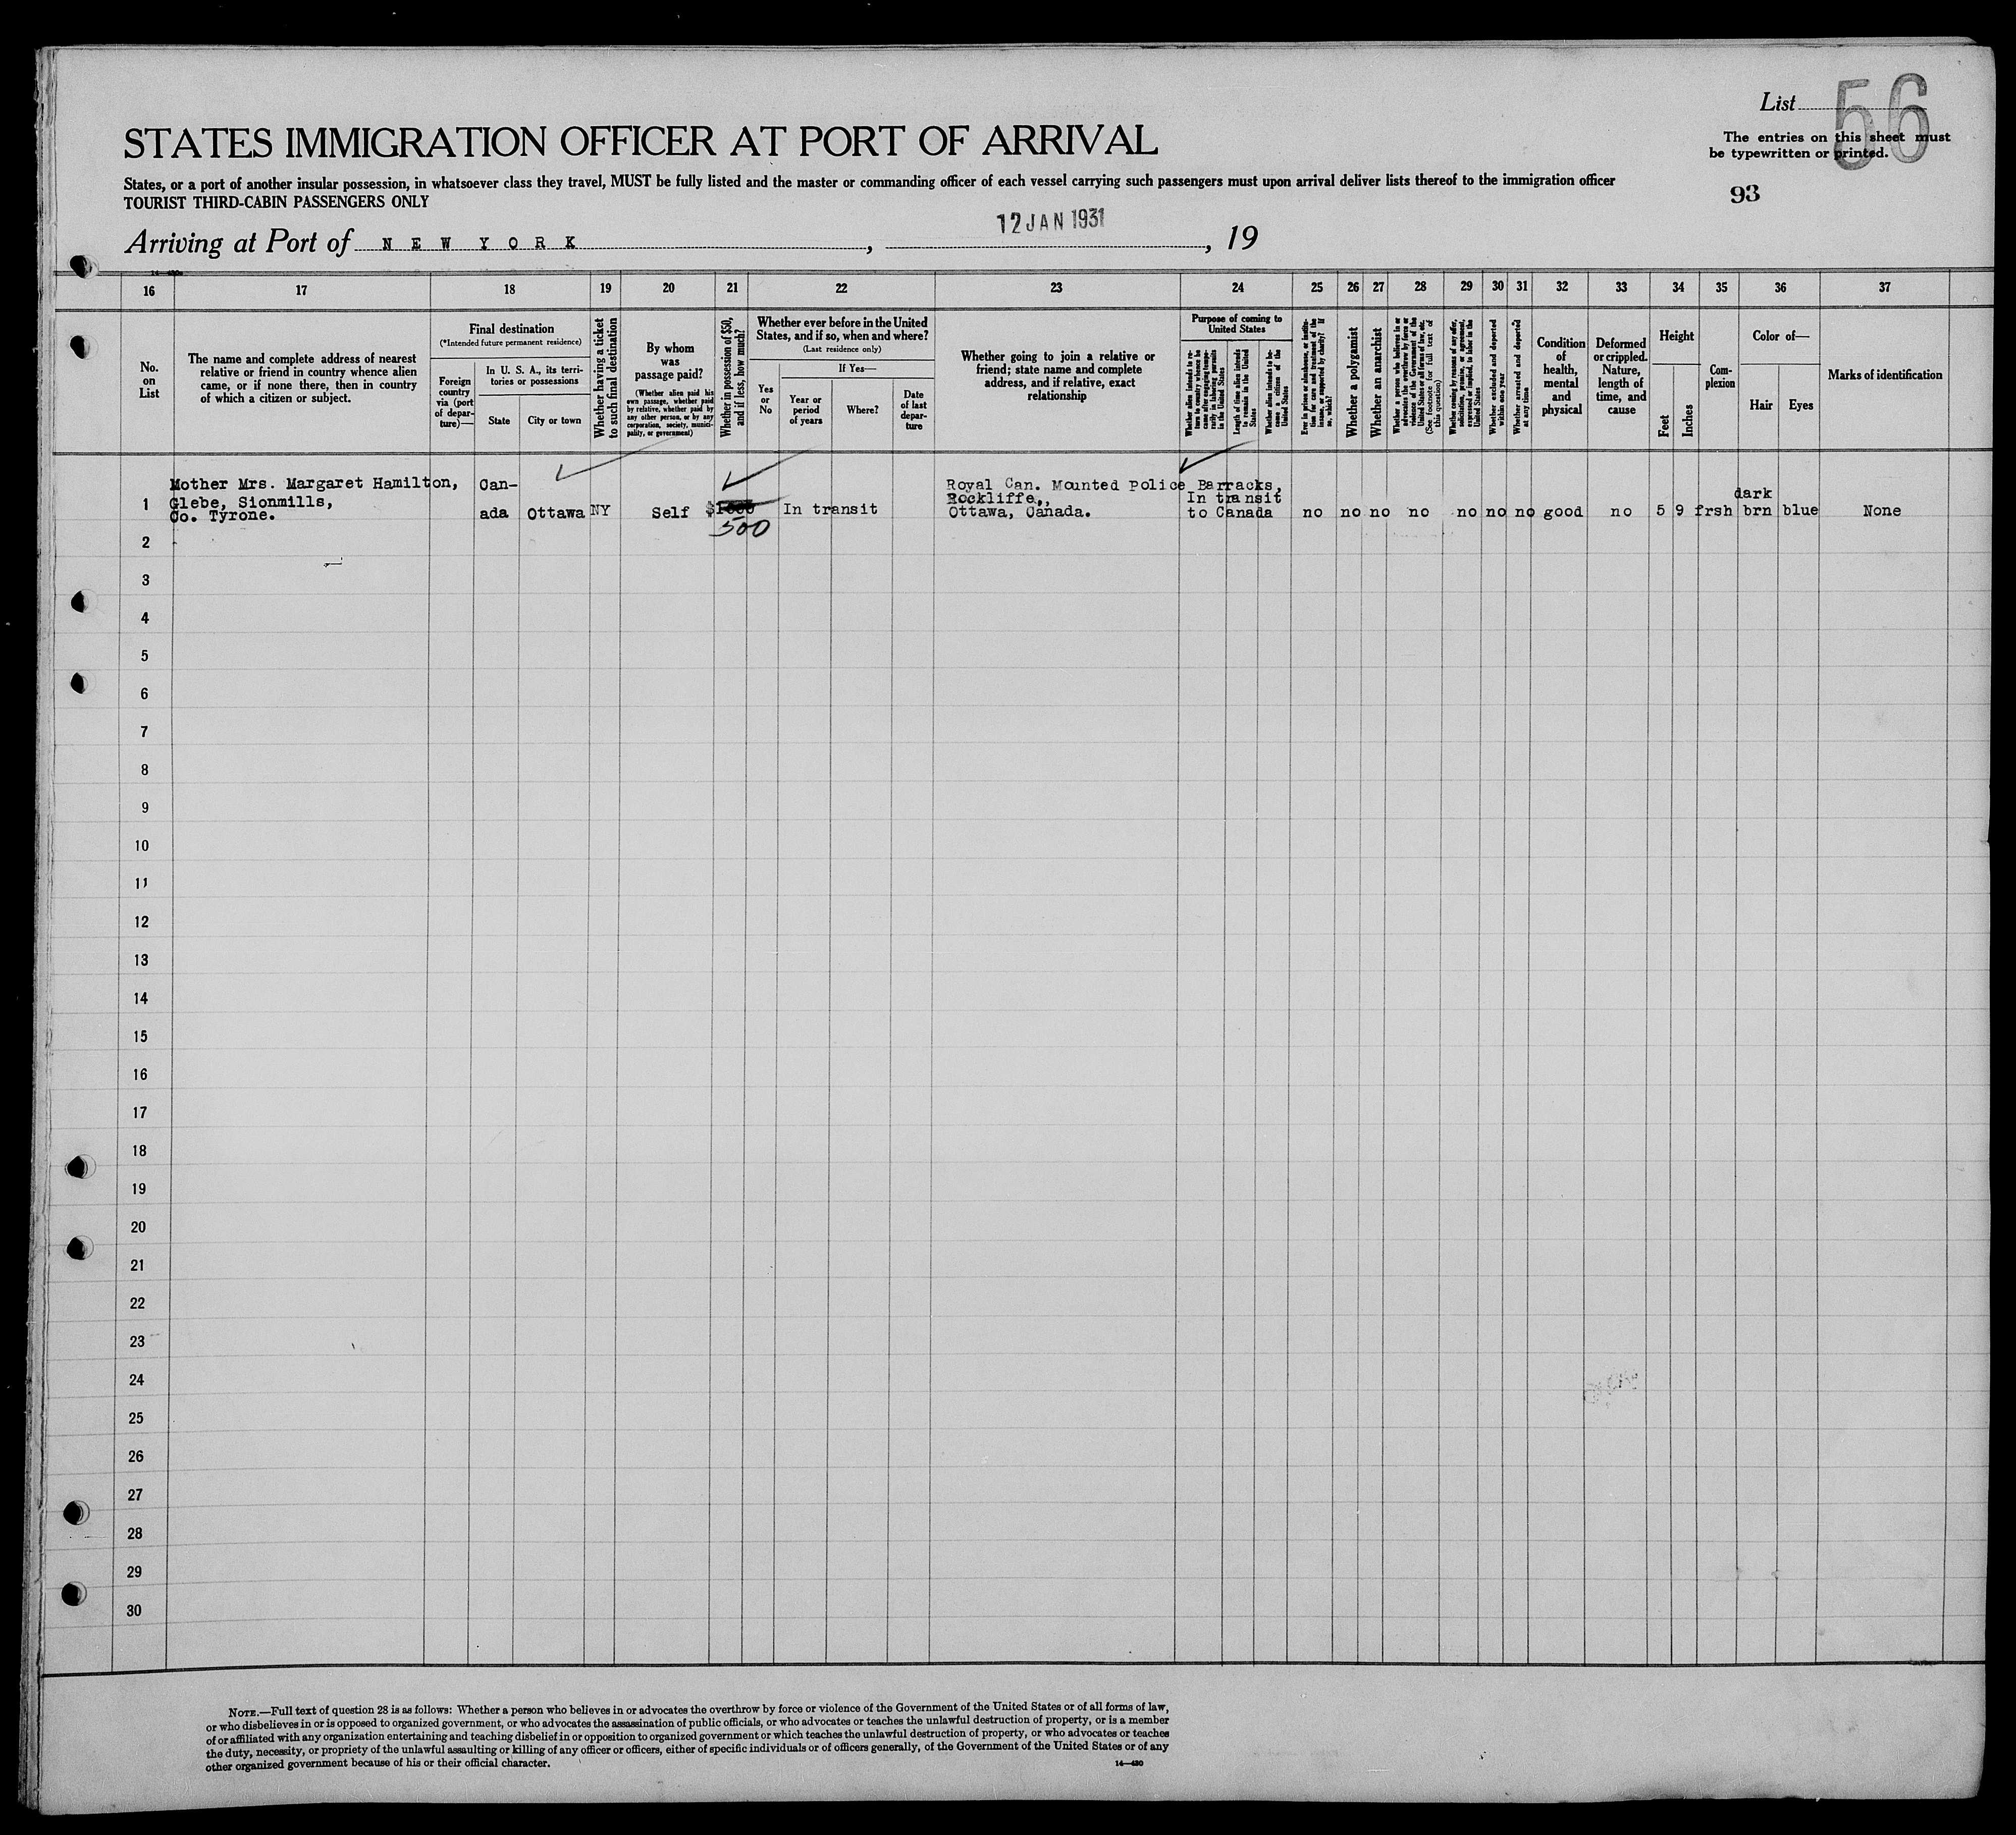 List 56
STATES IMMIGRATION OFFICER AT PORT OF ARRIVAL
The entries on this sheet must
be typewritten or printed.
States, or a port of another insular possession, in whatsoever class they travel, MUST be fully listed and the master or commanding officer of each vessel carrying such passengers must upon arrival deliver lists thereof to the immigration officer
TOURIST THIRD-CABIN PASSENGERS ONLY
93
Arriving at Port of NEW YORK, 12 JAN 1931, 19
16 17 18 19 20 21 22 23 24 25 26 27 28 29 30 31 32 33 34 35 36 37
No.
on
List
The name and complete address of nearest
relative or friend in country whence alien
came, or if none there, then in country
of which a citizen or subject.
Final destination
(*Intended future permanent residence)
Foreign
country
via (port
of depar-
ture)—
In U. S. A., its terri-
tories or possessions
State
City or town
Whether having a ticket
to such final destination
By whom
was
passage paid?
(Whether alien paid his
own passage, whether paid
by relative, whether paid by
any other person, or by any
corporation, society, munici-
pality, or government)
Whether in possession of $50,
and if less, how much?
Whether ever before in the United
States, and if so, when and where?
(Last residence only)
Yes
or
No
If Yes—
Year or
period
of years
Where?
Date
of last
depar-
ture
Whether going to join a relative or
friend; state name and complete
address, and if relative, exact
relationship
Purpose of coming to
United States
Whether alien intends to re-
turn to country whence he
came after engaging tempo-
rarily in laboring pursuits
in the United States
Length of time alien intends
to remain in the United
States
Whether alien intends to be-
come a citizen of the
United States
Ever in prison or almshouse, or institu-
tion for care and treatment of the
insane, or supported by charity? If
so, which?
Whether a polygamist
Whether an anarchist
Whether a person who believes in or
advocates the overthrow by force or
violence of the Government of the
United States or all forms of law, etc.
(See footnote for full text of
this question)
Whether coming by reasons of any offer,
solicitation, promise, or agreement,
expressed or implied, to labor in the
United States
Whether excluded and deported
within one year
Whether arrested and deported
at any time
Condition
of
health,
mental
and
physical
Deformed
or crippled.
Nature,
length of
time, and
cause
Height
Feet
Inches
Com-
plexion
Color of—
Hair
Eyes
Marks of identification
Mother Mrs. Margaret Hamilton,
Glebe, Sionmills,
Co. Tyrone.
Can-
ada
Ottawa
NY
Self
500
In transit
Royal Can. Mounted Police Barracks,
Rockliffe,,
Ottawa, Canada.
In transit
to Canada
no no no no no no no good no 5 9 frsh
dark
brn
blue
None
1
2
3
4
5
6
7
8
9
10
11
12
13
14
15
16
17
18
19
20
21
22
23
24
25
26
27
28
29
30
NOTE.—Full text of question 28 is as follows: Whether a person who believes in or advocates the overthrow by force or violence of the Government of the United States or of all forms of law,
or who disbelieves in or is opposed to organized government, or who advocates the assassination of public officials, or who advocates or teaches the unlawful destruction of property, or is a member
of or affiliated with any organization entertaining and teaching disbelief in or opposition to organized government or which teaches the unlawful destruction of property, or who advocates or teaches
the duty, necessity, or propriety of the unlawful assaulting or killing of any officer or officers, either of specific individuals or of officers generally, of the Government of the United States or of any
other organized government because of his or their official character.
14—430